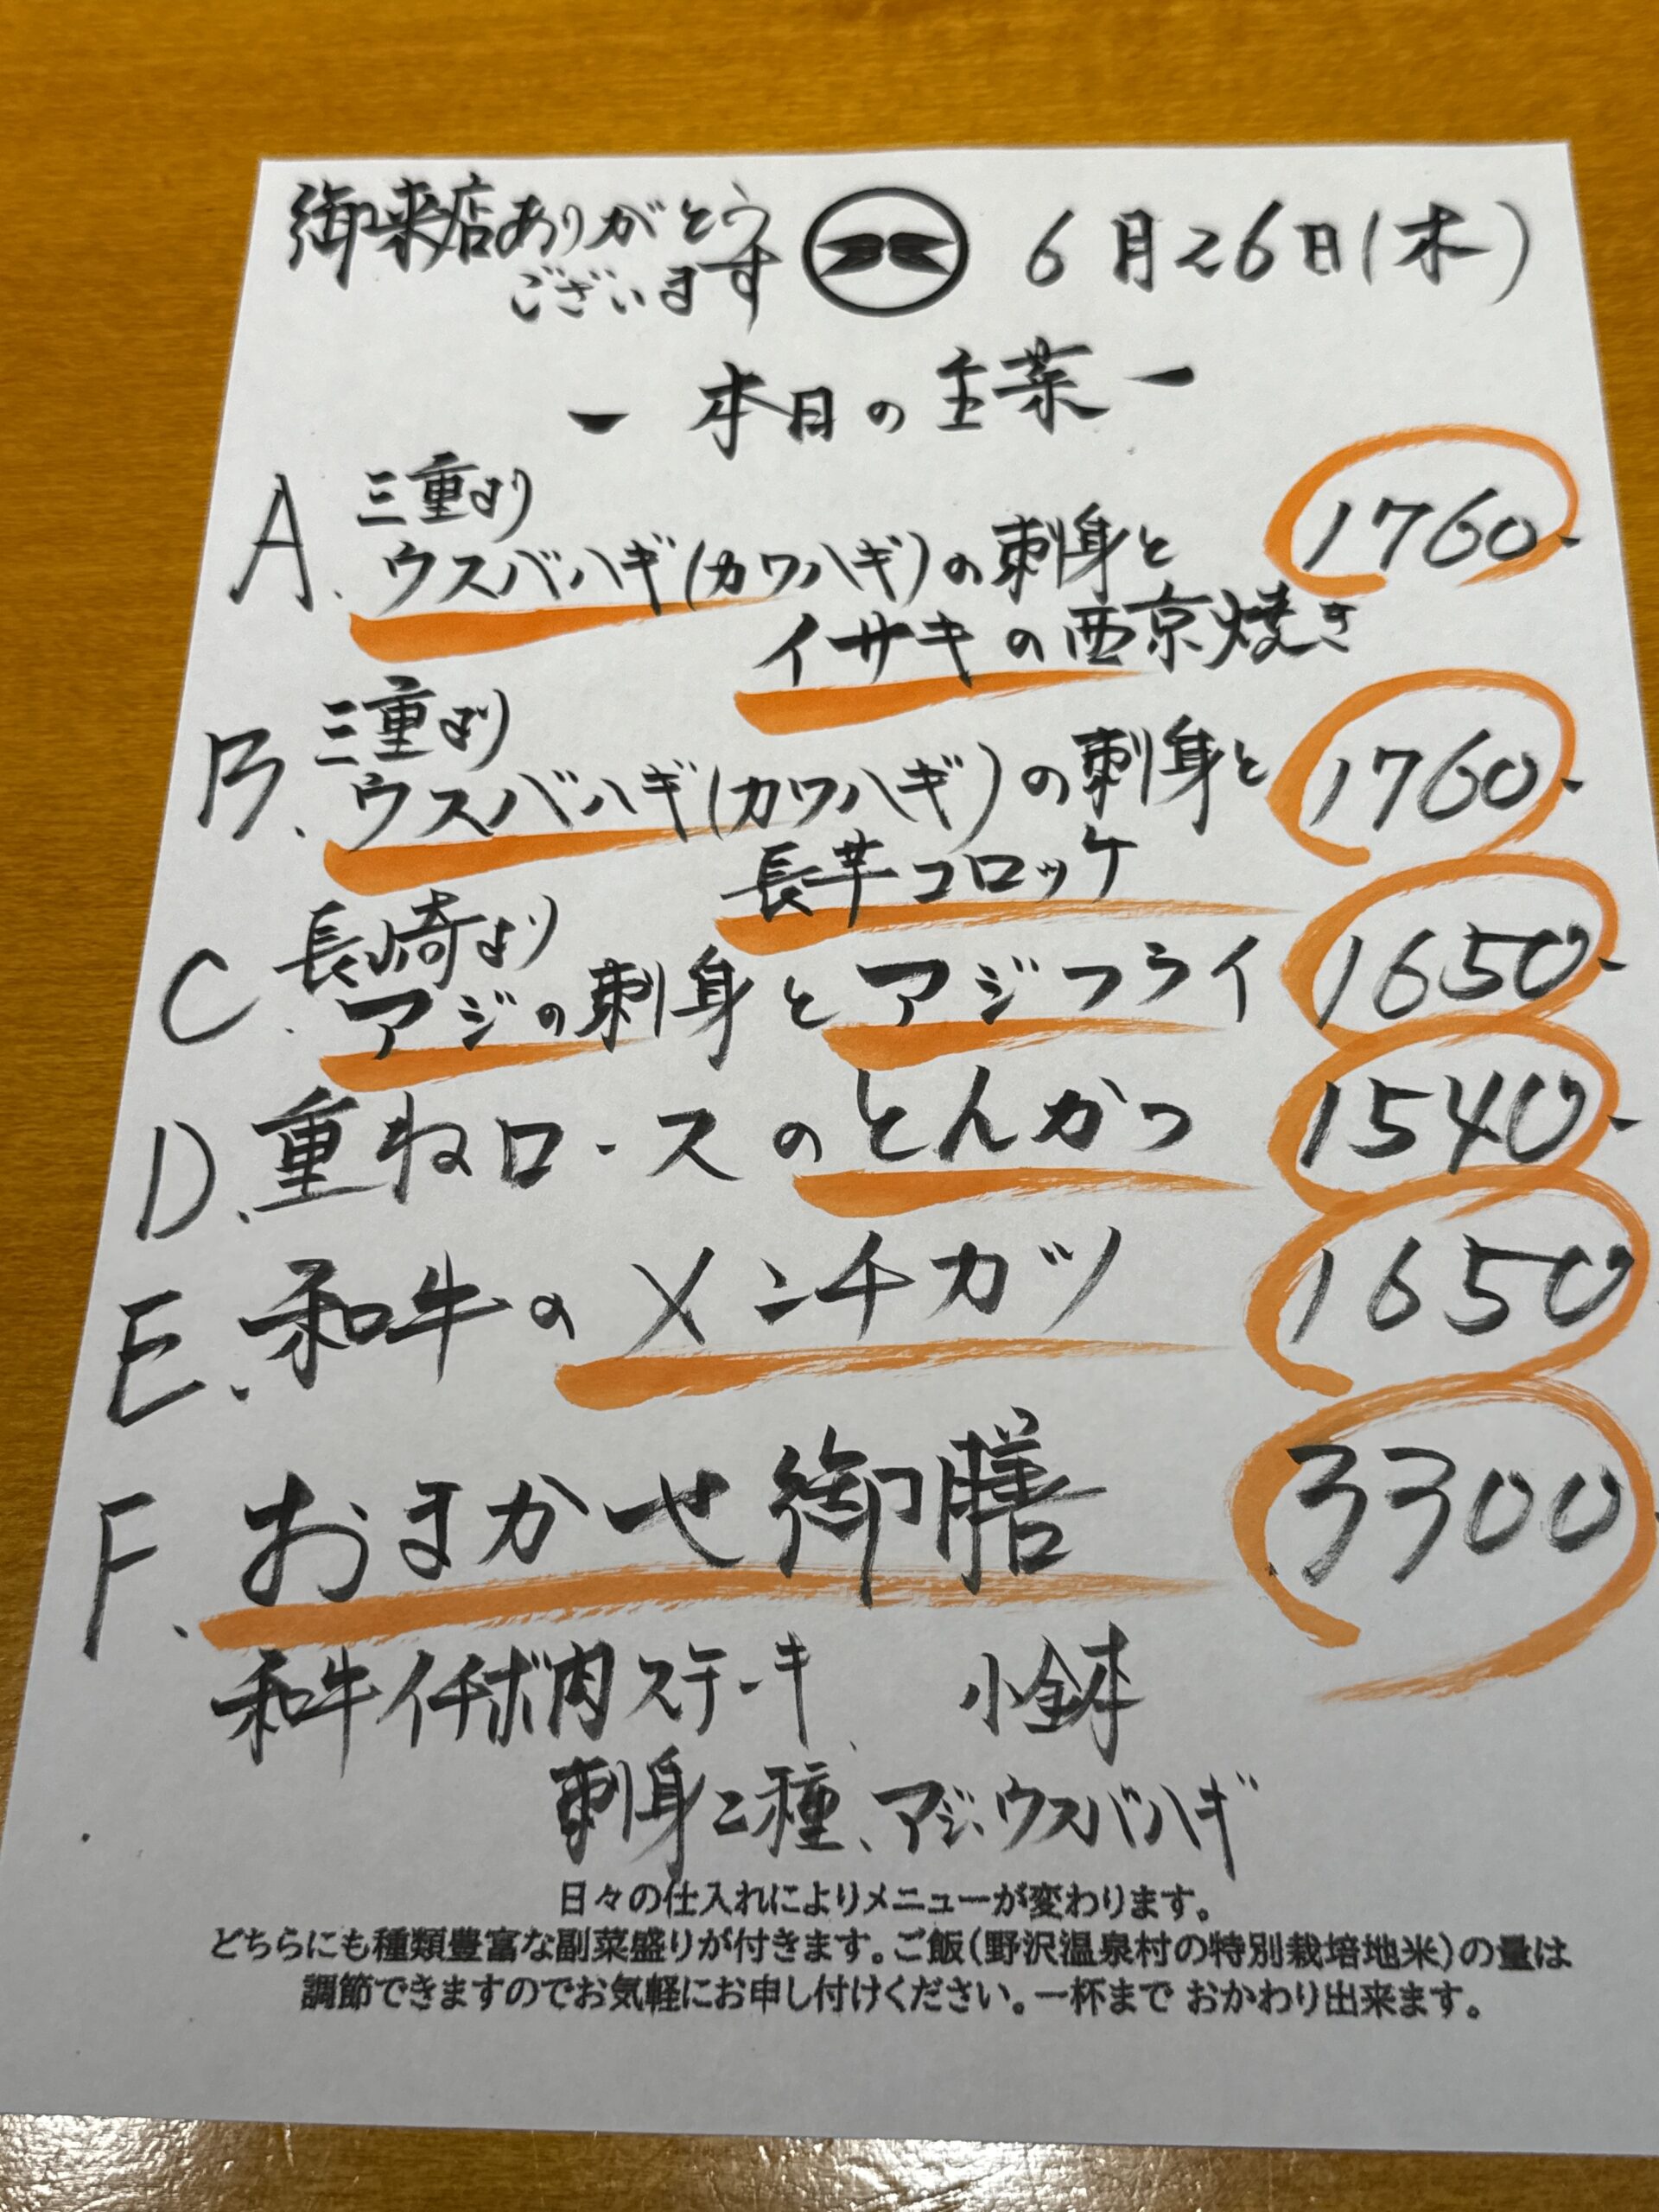 御来店ありがとう
ございます
6月26日(木)
ー 本日の主菜 ー
A. 三重より
ウスバハギ(カワハギ)の刺身と
イサキの西京焼き
1760-
B. 三重より
ウスバハギ(カワハギ)の刺身と
長芋コロッケ
1760-
C. 長崎より
アジの刺身とアジフライ 1650-
D. 重ねロースのとんかつ 1540-
E. 和牛のメンチカツ 1650-
F. おまかせ御膳 3300-
和牛イチボ肉ステーキ、 小鉢
刺身二種、アジ、ウスバハギ
日々の仕入れによりメニューが変わります。
どちらにも種類豊富な副菜盛りが付きます。ご飯(野沢温泉村の特別栽培地米)の量は
調節できますのでお気軽にお申し付けください。一杯まで おかわり出来ます。